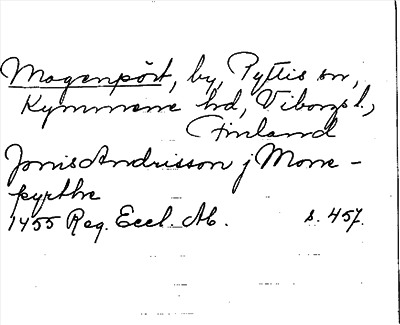 Mogenpört, by, Pyttis sn,
Kymmene hd, Viborgs l.,
Finland
Jønis Andrisson j Monne-
pyrthe
1455 Reg. Eccl. Ab. s. 457.